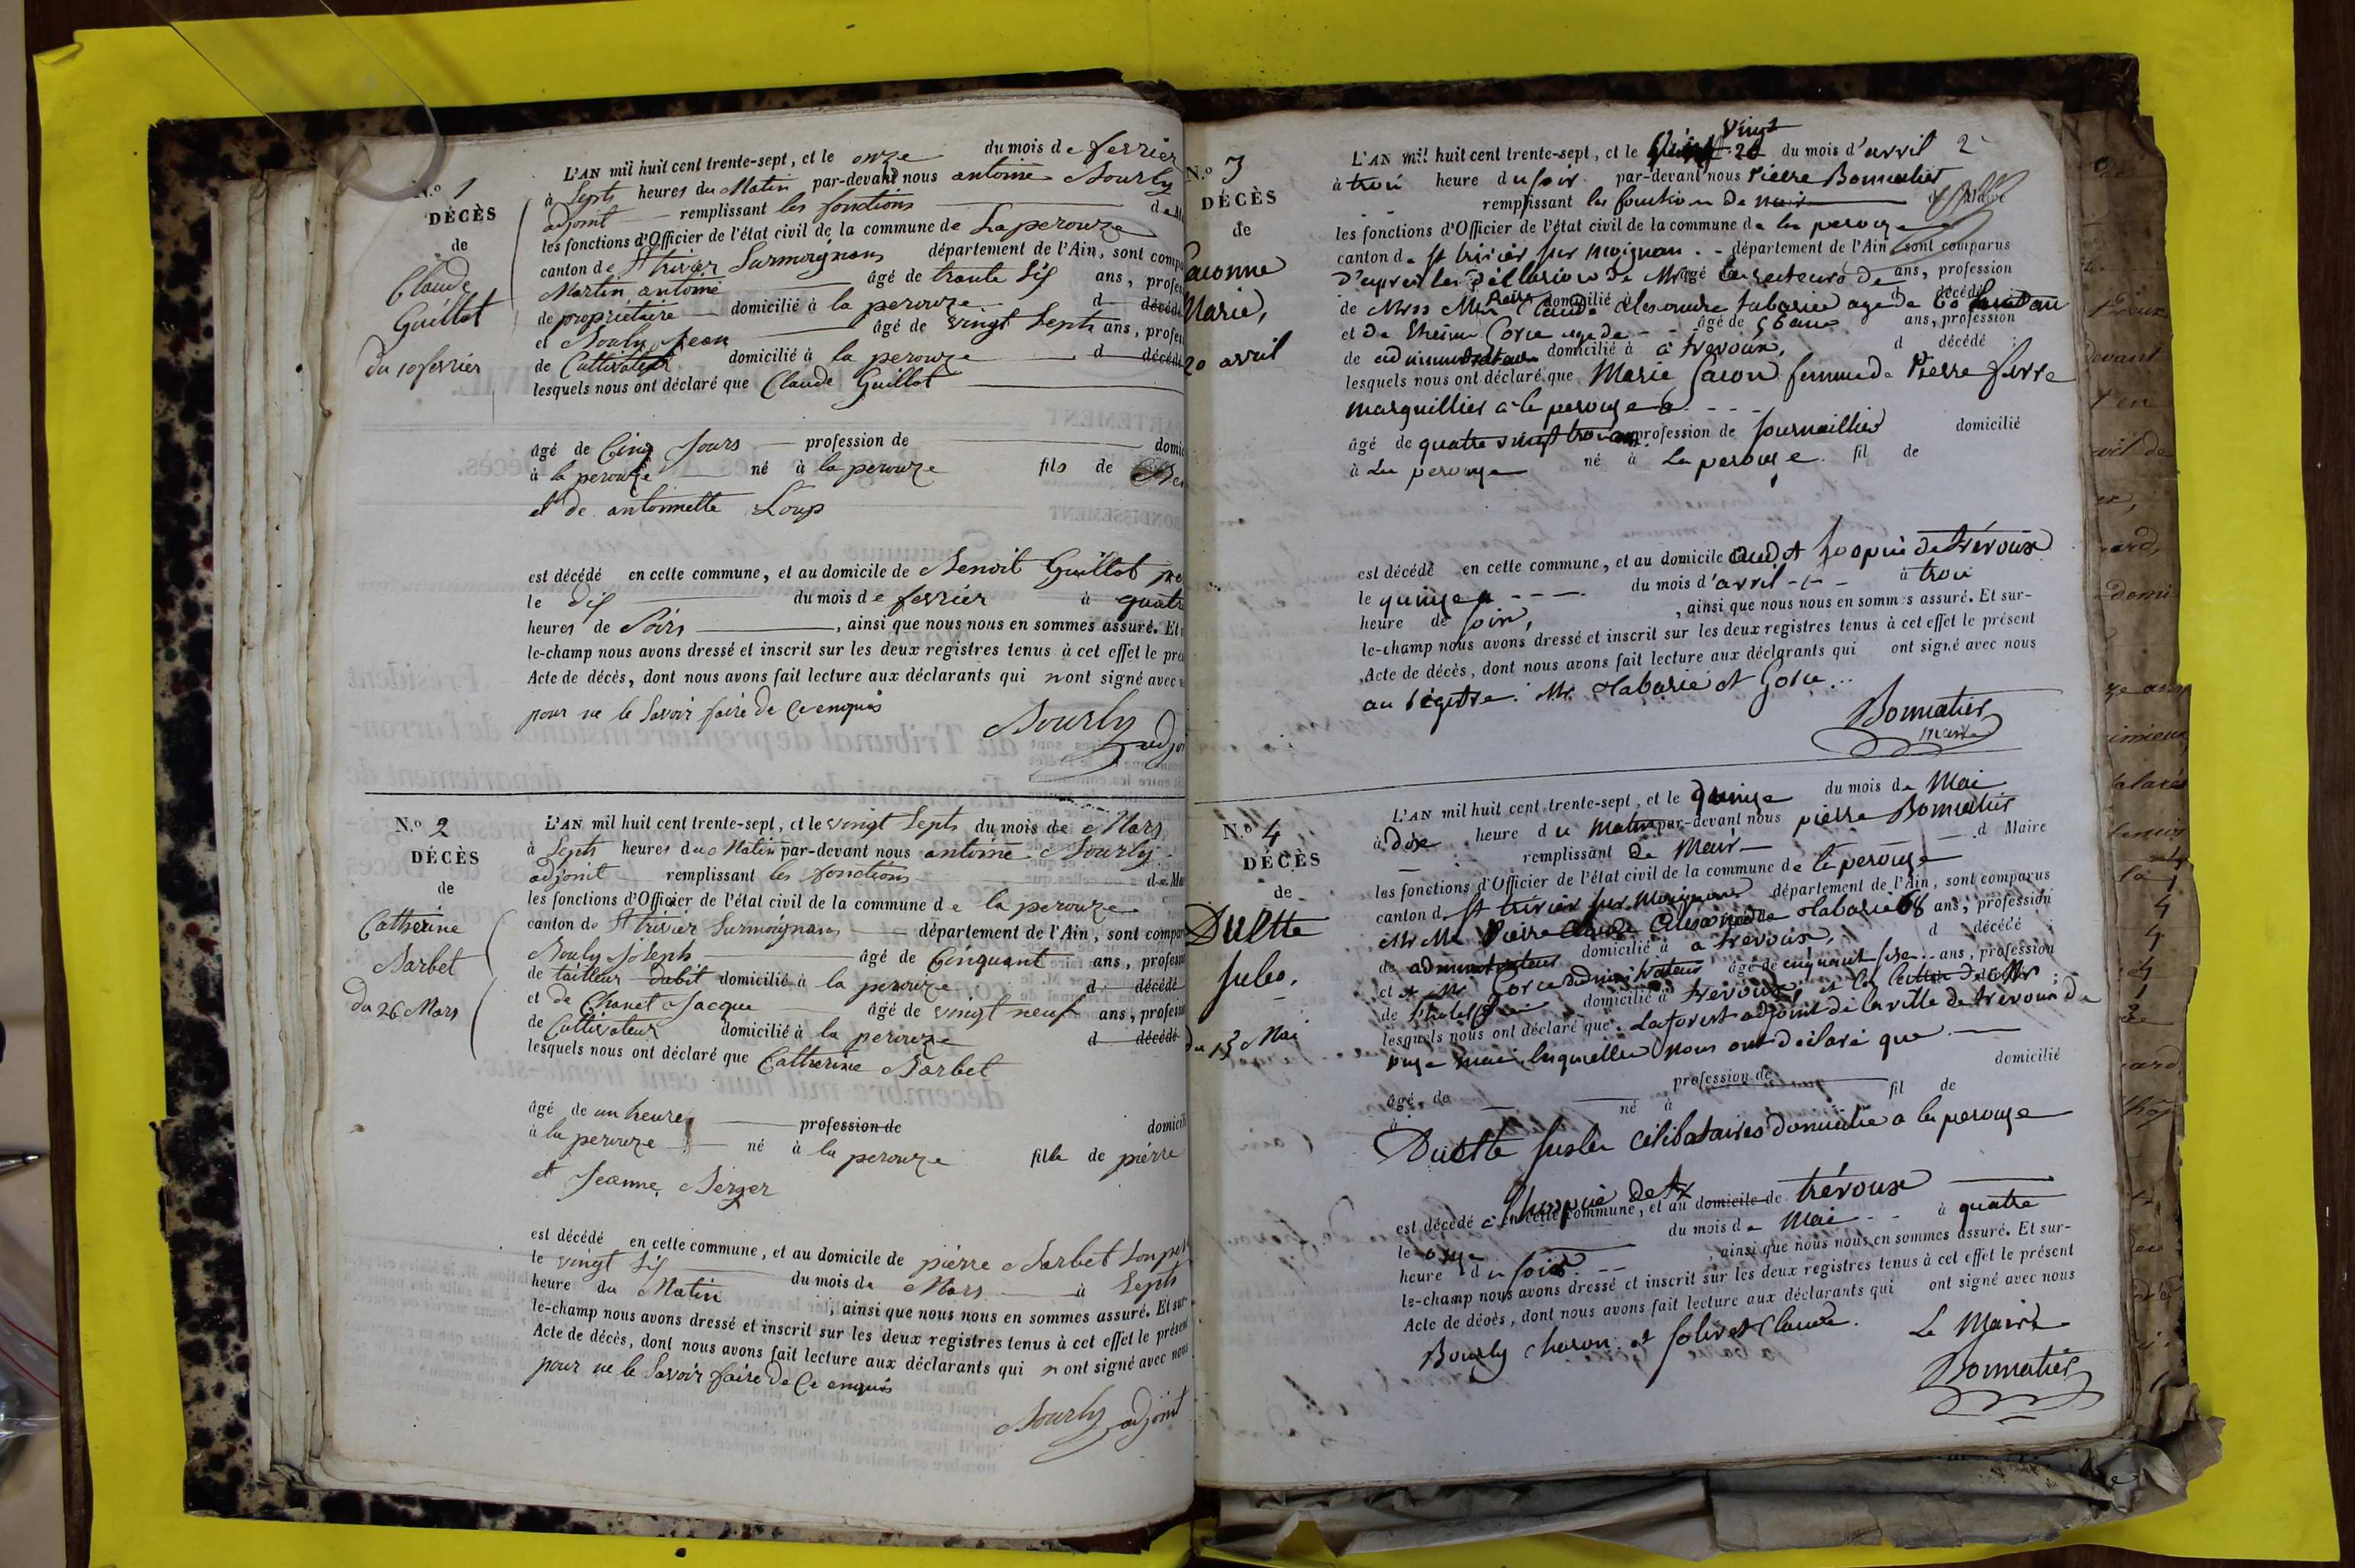 N.º 1
DÉCÈS
de
Claude
Guillot
du 10 fevrier
L'AN mil huit cent trente-sept, et le onze du mois de fevrier
à Septs heures du Matin par-devant nous antoine Bourly
adjoint remplissant les fonctions d
les fonctions d'Officier de l'état civil de la commune de Laperouze
canton de St trivier Surmoignans département de l'Ain, sont comp
Martin antoine âgé de trante Six ans, profes
de propriétaire domicilié à la perouze d décédé
et Bouly Jean âgé de vingt Septs ans, profes
de Cultivateur domicilié à la perouze d décédé
lesquels nous ont déclaré que Claude Guillot
âgé de Cinq Jours profession de domic
à la perouze né à la perouze fils de Be
et de antoinette Loup
est décédé en cette commune, et au domicile de Benoit Guillot
le dix du mois de fevrier à quatre
heures de Soirs, ainsi que nous nous en sommes assuré. Et
le-champ nous avons dressé et inscrit sur les deux registres tenus à cet effet le pré
Acte de décès, dont nous avons fait lecture aux déclarants qui n ont signé avec
pour ne le Savoir faire de Ce enquis
Bourly adjoi
N.º 2
DÉCÈS
de
Catherine
Barbet
du 26 Mars
L'AN mil huit cent trente-sept, et le vingt Septs du mois de Mars
à Septs heures du Matin par-devant nous antoine Bourly
adjoint remplissant les fonctions d Ma
les fonctions d'Officier de l'état civil de la commune de la perouze
canton de St trivier Surmoignans département de l'Ain, sont compar
Bouly Joseph âgé de Cinquant ans, profess
de tailleur dabit domicilié à la perouze d décédé
et de Chanet Jacque âgé de vingt neuf ans, profess
de Cultivateur domicilié à la perouze d décédé
lesquels nous ont déclaré que Catherine Barbet
âgé de un heure profession de domicili
à la perouze né à la perouze fille de pierre
et Jeanne Berger
est décédé en cette commune, et au domicile de pierre Barbet Son per
le vingt Six du mois de Mars à Septs
heure du Matin, ainsi que nous nous en sommes assuré. Et sur-
le-champ nous avons dressé et inscrit sur les deux registres tenus à cet effet le présent
Acte de décès, dont nous avons fait lecture aux déclarants qui n ont signé avec nous
pour ne le Savoir faire de Ce enquis
Bourly adjoint
N.º 3
DÉCÈS
de
Marie,
20 avril
L'AN mil huit cent trente-sept, et le vingt 20 du mois d'avril 2
à troi heure du soir par-devant nous Pierre Bonnatier
remplissant les fonction de mair
les fonctions d'Officier de l'état civil de la commune de la perouze
canton de st trivier sur moignan département de l'Ain sont comparus
âgé de ans, profession
domicilié d décédé
et de âgé de 56 ans ans, profession
de administrateur domicilié à à trevoux, d décédé ;
lesquels nous ont déclaré que Marie Jacon femme de Pierre ferre
marguillier à la perouze
âgé de quatre vingt trois ans profession de Journaillier domicilié
à La perouze né à La perouze fil de
est décédé en cette commune, et au domicile audit hospice de trévoux
le quinze du mois d'avril à troi
heure de soir, , ainsi que nous nous en sommes assuré. Et sur-
le-champ nous avons dressé et inscrit sur les deux registres tenus à cet effet le présent
Acte de décès, dont nous avons fait lecture aux déclarants qui ont signé avec nous
au régitre. Mr. Labarie et Gorce
Bonnatier
maire
N.º 4
DÉCÈS
de
Duette
Jules,
du 13 Mai
L'AN mil huit cent trente-sept, et le quinze du mois de Mai
à dix heure du matin par-devant nous pierre Bonnatier
remplissant de Mair d Maire
les fonctions d'Officier de l'état civil de la commune de la perouze
canton d. st trivier sur Moignan département de l'Ain, sont comparus
Mr Pierre Claude Alexandre Labarie 68 ans, profession
de administrateur domicilié à à trévoux, d décédé ;
et Mr Gorce administrateur âgé de cinquant six ans, profession
de domicilié à trévoux, et la lettre de Mr
lesquels nous ont déclaré que Laforest adjoint de la ville de trévoux de
onze mai, lesquelles nous ont déclaré que
âgé de profession de domicilié
à né à fil de
Duette Jules célibataires domicilié a la perouze
est décédé à en cette commune, et au domicile de trévoux
le onze du mois de Mai à quatre
heure du soir ainsi que nous nous en sommes assuré. Et sur-
le-champ nous avons dressé et inscrit sur les deux registres tenus à cet effet le présent
Acte de décès, dont nous avons fait lecture aux déclarants qui ont signé avec nous
Bourly Charon et Solivet Claude. Le Maire
Bonnatier